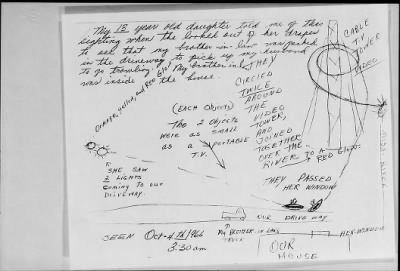 My 15 year old daughter told me of this
sighting when she looked out of her drapes
to see that my brother-in-law was parked
in the driveway to pick up my husband
to go trawling. My brother in law
was inside the house.
Orange, yellow, and Red Glo.
CABLE
T.V.
TOWER
VIDEO
THEY
CIRCLED
TWICE
AROUND
THE
VIDEO
TOWER,
AND
JOINED
TOGETHER
OVER THE
RIVER TO A
RED Glo.
(EACH Object)
The 2 objects
were as small
as a portable
T.V.
SHE SAW
2 LIGHTS
COMING TO OUR
DRIVEWAY.
THEY PASSED
HER WINDOW
OUR DRIVEWAY
SEEN Oct-4th/966
3:30 am
My BROTHER IN LAWS
TRUCK
HER WINDOW
OUR
HOUSE